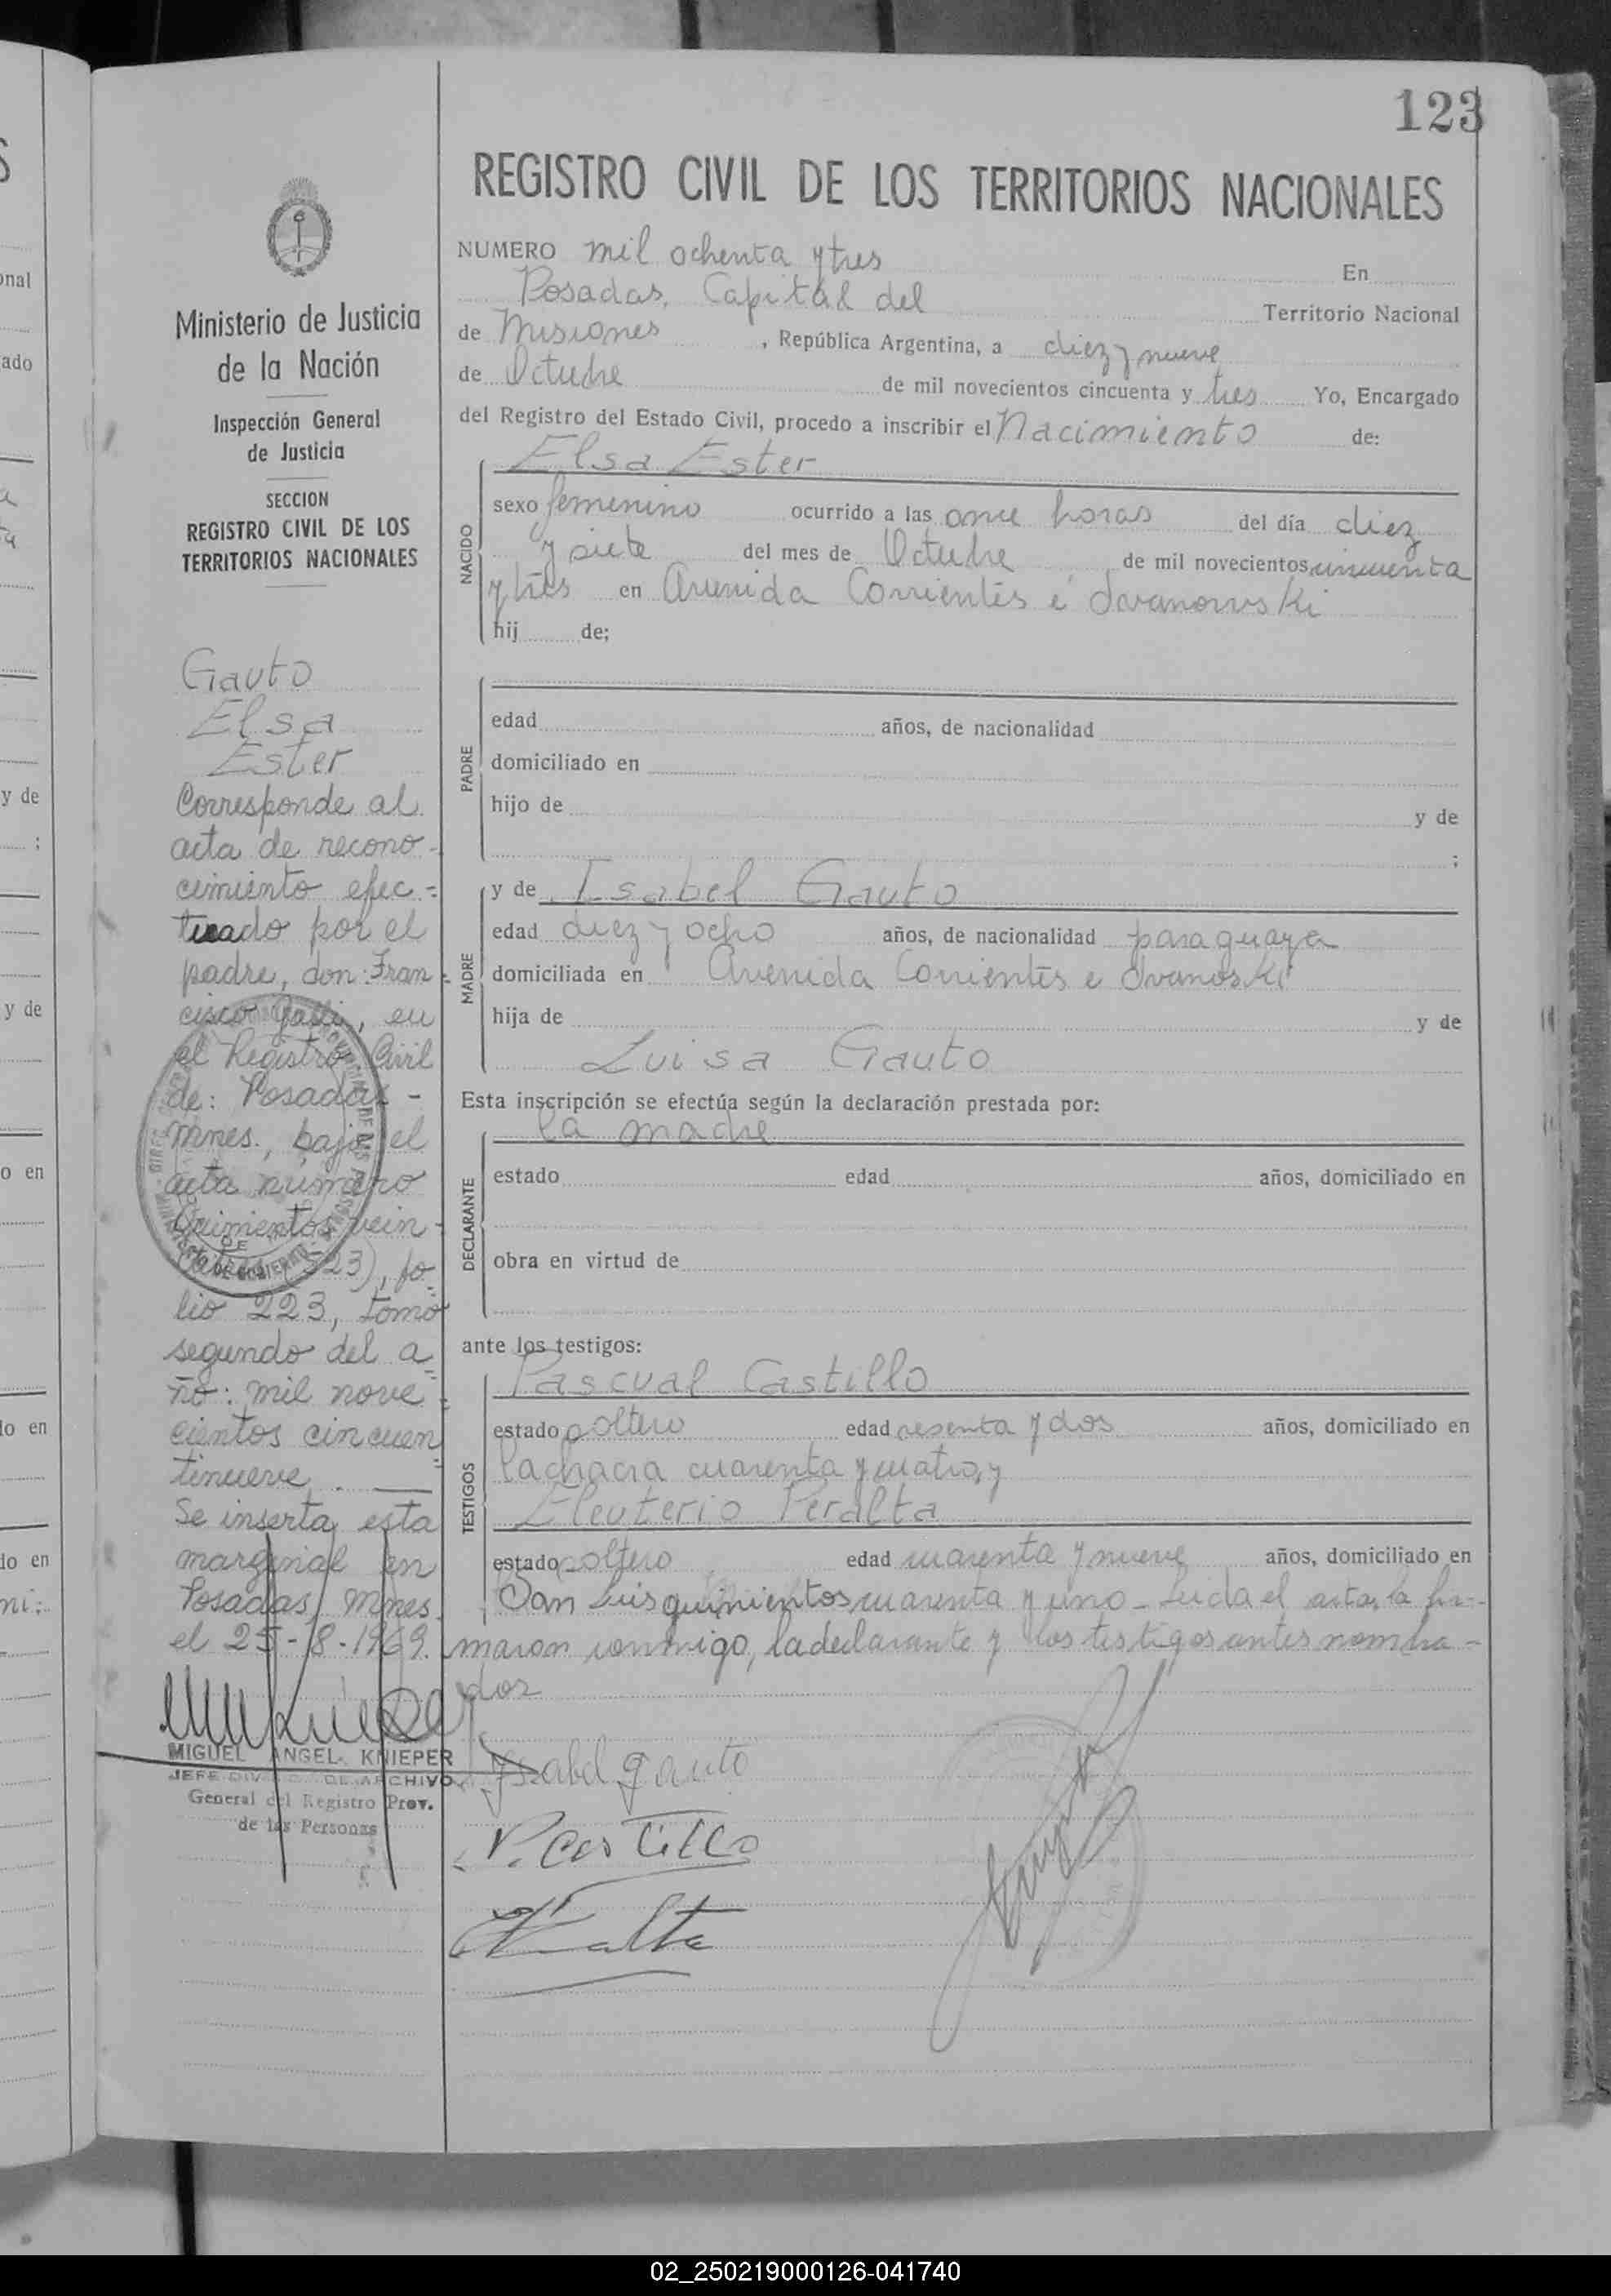 123
REGISTRO CIVIL DE LOS TERRITORIOS NACIONALES
NUMERO mil ochenta y tres En
Posadas, Capital del Territorio Nacional
de Misiones, República Argentina, a diez y nueve
de Octubre de mil novecientos cincuenta y tres Yo, Encargado
del Registro del Estado Civil, procedo a inscribir el Nacimiento de:
NACIDO
Elsa Ester
sexo femenino ocurrido a las once horas del día diez
y siete del mes de Octubre de mil novecientos cincuenta
y tres en Avenida Corrientes é
hij de;
PADRE
edad años, de nacionalidad
domiciliado en
hijo de y de
;
MADRE
y de Isabel Gauto
edad diez y ocho años, de nacionalidad paraguaya
domiciliada en Avenida Corrientes e Ivanoski
hija de y de
Luisa Gauto
Esta inscripción se efectúa según la declaración prestada por:
DECLARANTE
la madre
estado edad años, domiciliado en
obra en virtud de
ante los testigos:
TESTIGOS
Pascual Castillo
estado soltero edad sesenta y dos años, domiciliado en
la chacra cuarenta y cuatro, y
Eleuterio Peralta
estado soltero edad cuarenta y nueve años, domiciliado en
San Luis quinientos cuarenta y uno - Leida el acta, la fir-
maron conmigo, la declarante y los testigos antes nombra-
dos
Ysabel gauto
P. Castillo
Ministerio de Justicia
de la Nación
Inspección General
de Justicia
SECCION
REGISTRO CIVIL DE LOS
TERRITORIOS NACIONALES
Gauto
Elsa
Ester
Corresponde al
acta de recono-
cimiento efec=
tuado por el
padre, don: Fran=
cisco Galli, en
el Registro Civil
de: Posadas -
Mnes., bajo el
acta número
Quinientos vein-
(523), fo=
lio 223, tomo
segundo del a=
ño: mil nove=
cientos cincuen=
tinueve. —
Se inserta esta
marginal en
Posadas, Mnes.
el 25-8-1969.
MIGUEL ANGEL KNIEPER
JEFE DE ARCHIVO
General del Registro Prov.
de las Personas
onal
ado
y de
;
y de
o en
do en
do en
02_250219000126-041740